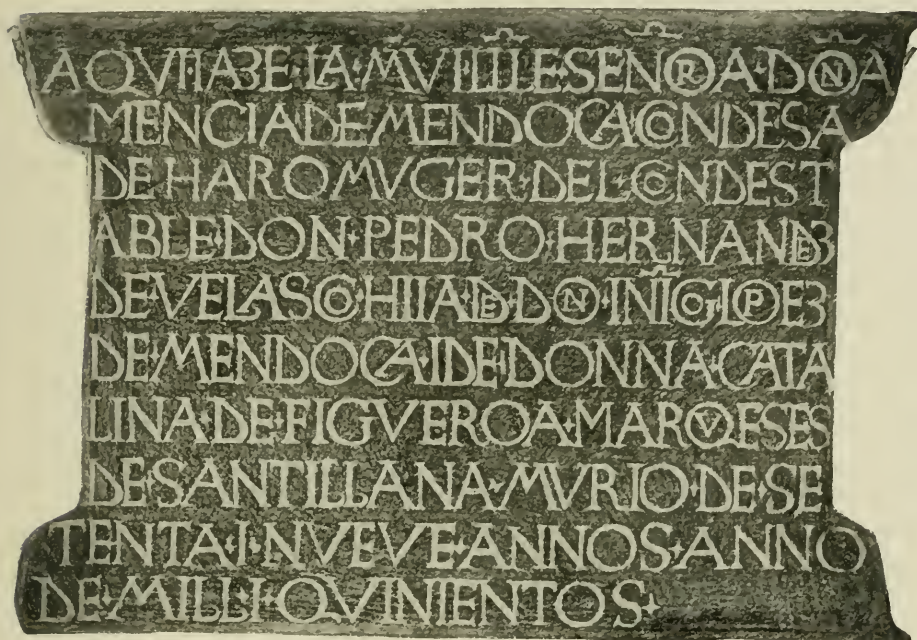 AQVI·IAZE·LA·MVI·ILLE·SEÑORA·DOÑA
MENCIA·DE·MENDOÇA·CONDESA
DE·HARO·MVGER·DEL·CONDEST
ABLE·DON·PEDRO·HERNANDEZ
DE·VELASCO·HIIA·DE·DON·IÑIGO·LOPEZ
DE·MENDOÇA·I·DE·DONNA·CATA
LINA·DE·FIGVEROA·MARQVESES
DE·SANTILLANA·MVRIO·DE·SE
TENTA·I·NVEVE·ANNOS·ANNO
DE·MILL·I·QVINIENTOS·